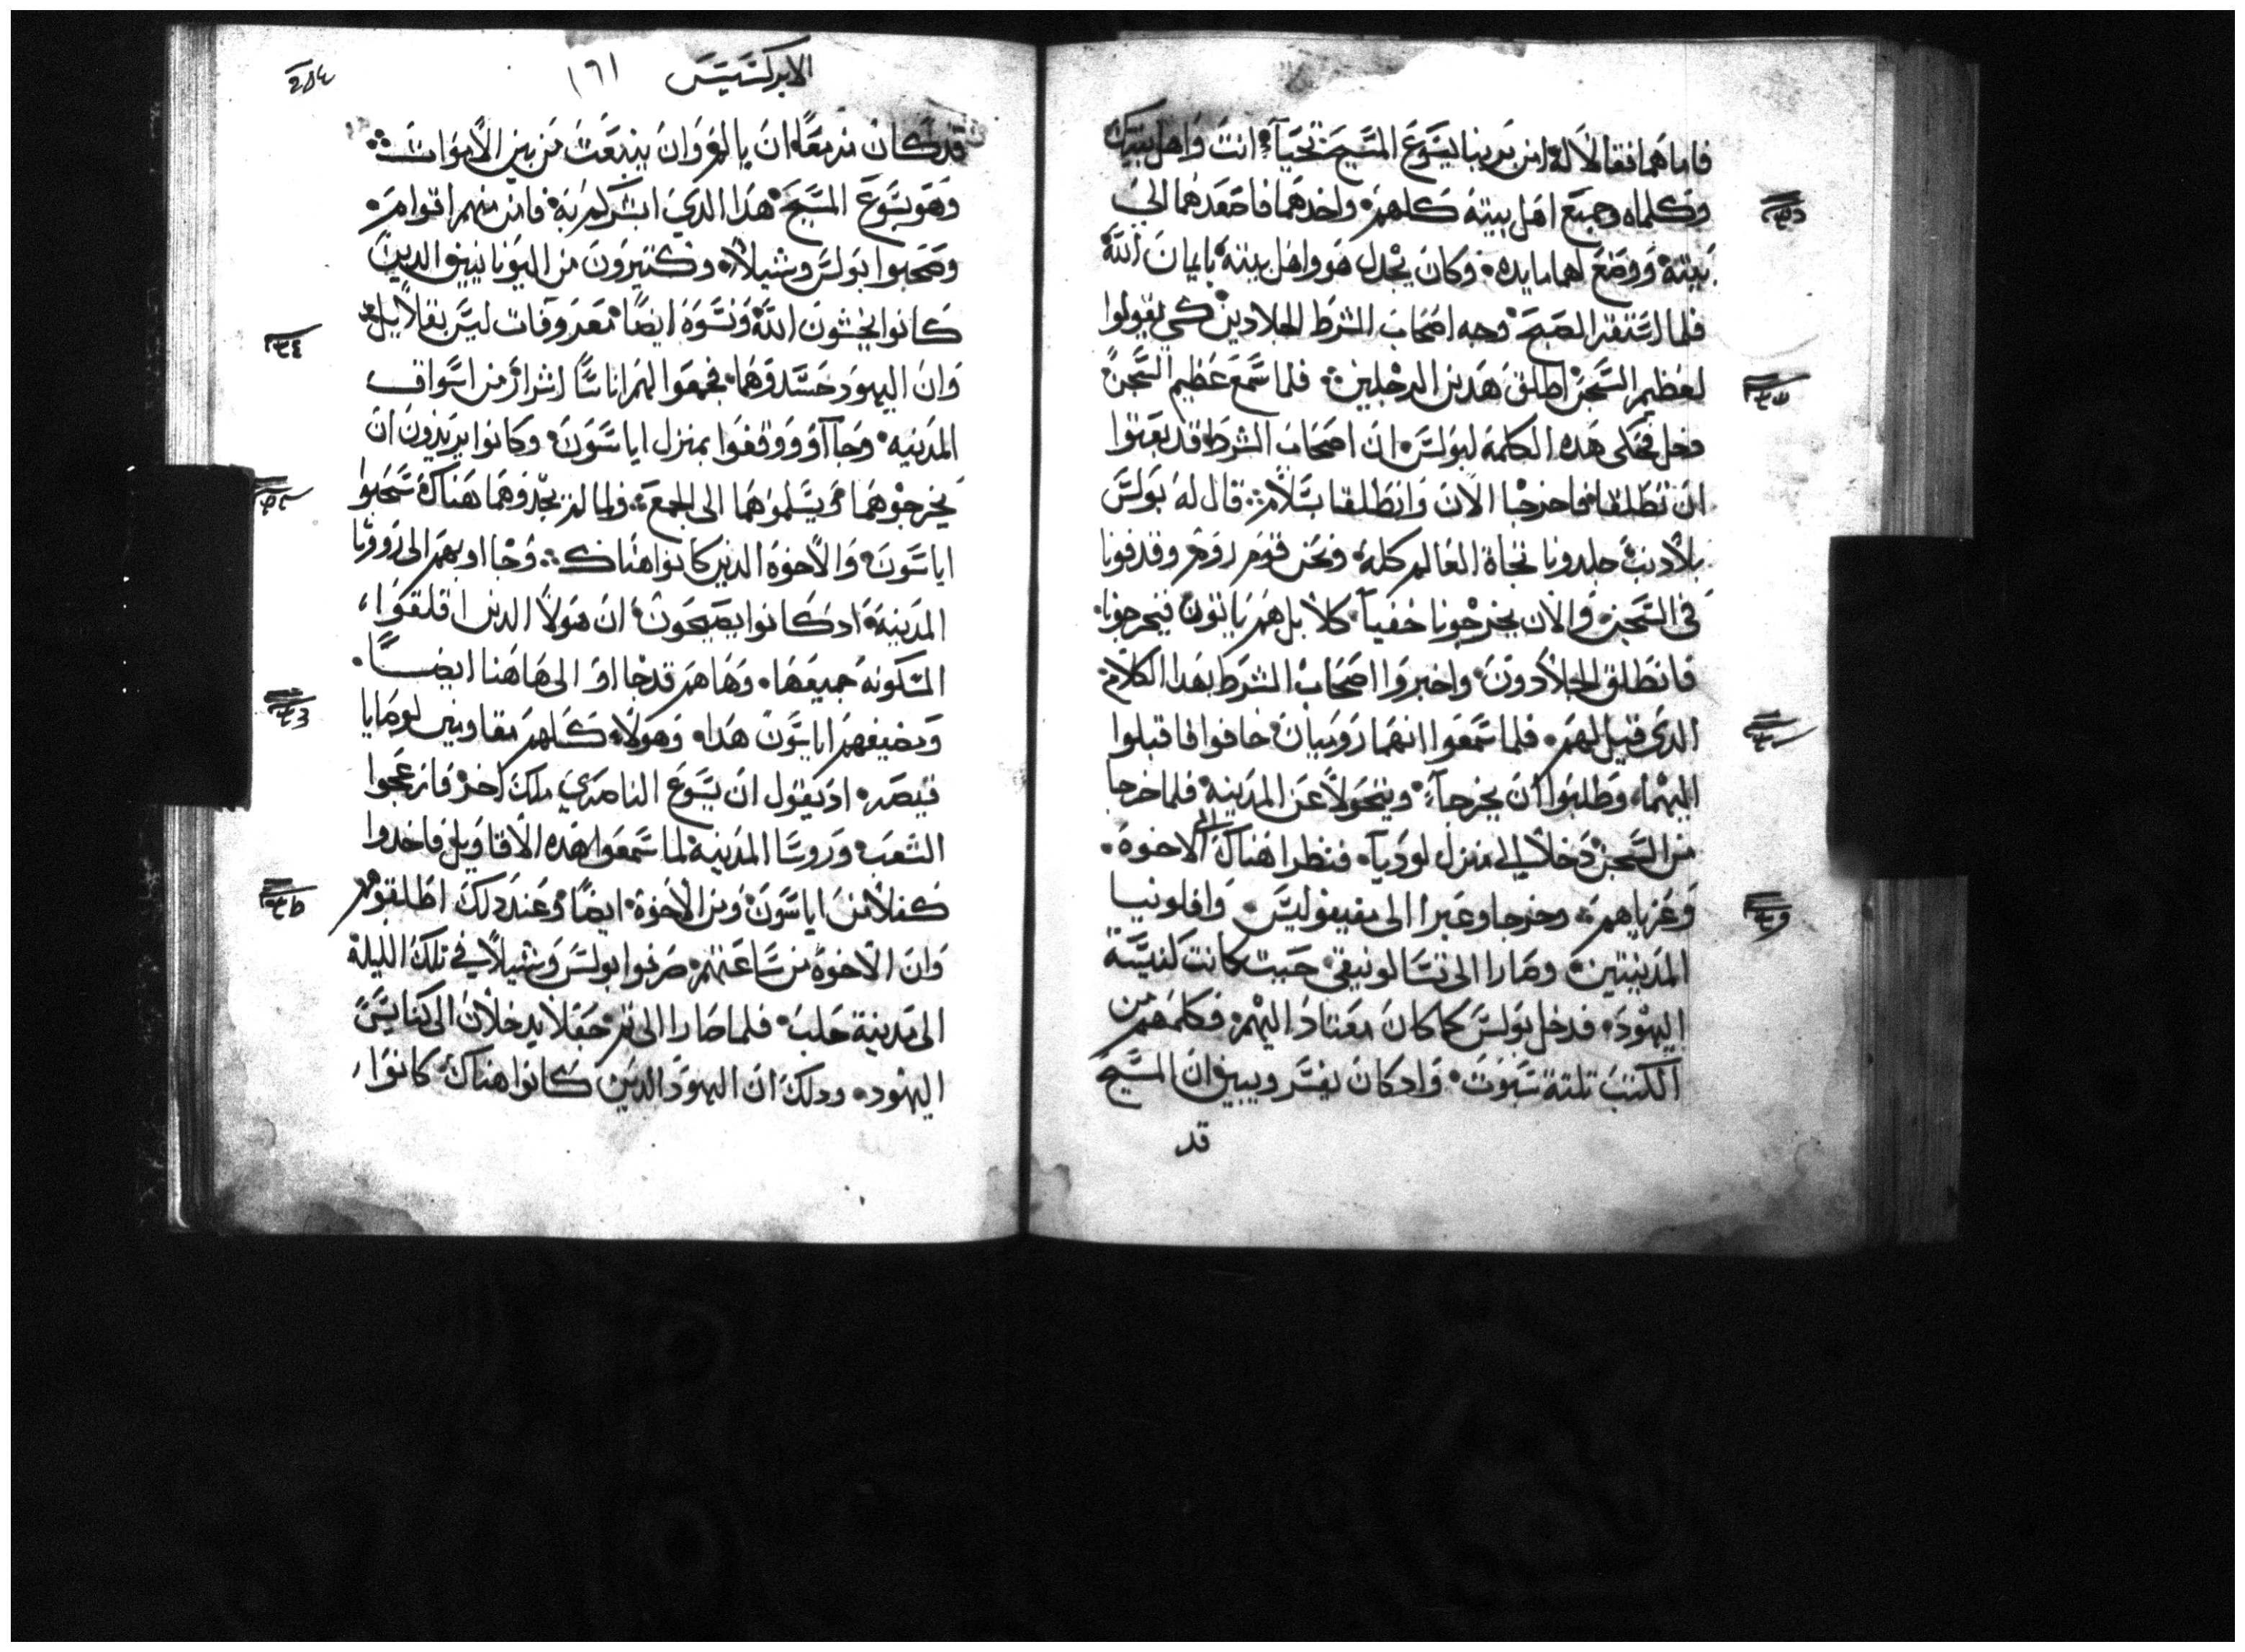 فاما هما فقالا له امن بربنا يسوع المسيح تحيا انت واهل بيتك
وكلماه وجميع اهل بيته كلهم واخدهما فاصعدهما الي
بيته ووضع لهما مايده وكان يجدل هو واهل بيته بايمان الله
فلما استقر الصبح وجه اصحاب الشرط الجلادين كي يقولوا
لعظيم السجن اطلق هدين الرجلين فلما سمع عظيم السجن
دخل فحكى هده الكلمة لبولس ان اصحاب الشرط قد بعتوا
ان تطلقا فاخرجا الان وانطلقا بسلام قال له بولس
بلا دنب جلدونا تجاة العالم كله ونحن قوم روم وقدفونا
في السجن والان يخرجونا خفيا كلا بل هم ياتون فيخرجونا
فانطلق الجلادون واخبروا اصحاب الشرط بهدا الكلام
الدي قيل لهم فلما سمعوا انهما روميان خافوا فاقبلوا
اليهما وطلبوا ان يخرجا ويتحولا عن المدينة فلما خرجا
من السجن دخلا الى منزل لوديا فنظرا هناك الى الاخوة
وعزياهم وخرجا وعبرا الى مفيفوليس وافلونيا
المدينتين وصارا الى تسالونيقي حيت كانت كنيسة
اليهود فدخل بولس كما كان معتادا اليهم فكلمهم من
الكتب تلتة سبوت وادكان يفسر ويبين ان المسيح
قد
الابركسيس ١٦١
قد كان مزمعا ان يالم وان ينبعت من بين الاموات
وهو يسوع المسيح هدا الدي ابشركم به فامن منهم اقوام
وصحبوا بولس وشيلا وكتيرون من اليونانيين الدين
كانوا يخشون الله ونسوة ايضا معروفات ليس بقلايل
وان اليهود حسدوهما فجمعوا لهم اناسا اشرار من اسواق
المدينه وجااوو ووقفوا بمنزل اياسون وكانوا يريدون ان
يخرجوهما ويسلموهما الى الجمع ولما لم يجدوهما هناك سحبوا
اياسون والاخوه الدين كانوا هناك وجااو بهم الى رووسا
المدينة اد كانوا يصيحون ان هولا الدين اقلقوا
المسكونة جميعها وها هم قد جااو الى هاهنا ايضا
ومضيفهم اياسون هدا وهولا كلهم مقاومين لوصايا
قيصر اد يقول ان يسوع الناصري ملك اخر فانزعجوا
الشعب وروسا المدينة لما سمعوا هده الاقاويل فاخدوا
كفلا من اياسون ومن الاخوة ايضا وعند دلك اطلقوهم
وان الاخوة من ساعتهم صرفوا بولس وشيلا في تلك الليلة
الى مدينة حلب فلما صارا الى تم جعلا يدخلان الى كنايس
اليهود ودلك ان اليهود الدين كانوا هناك كانوا